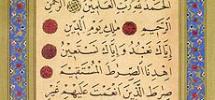 الحمد لله رب العالمين الرحمن
الرحيم ملك يوم الدين
إياك نعبد وإياك نستعين
اهدنا الصرط المستقيم
صرط الذين أنعمت عليهم غير